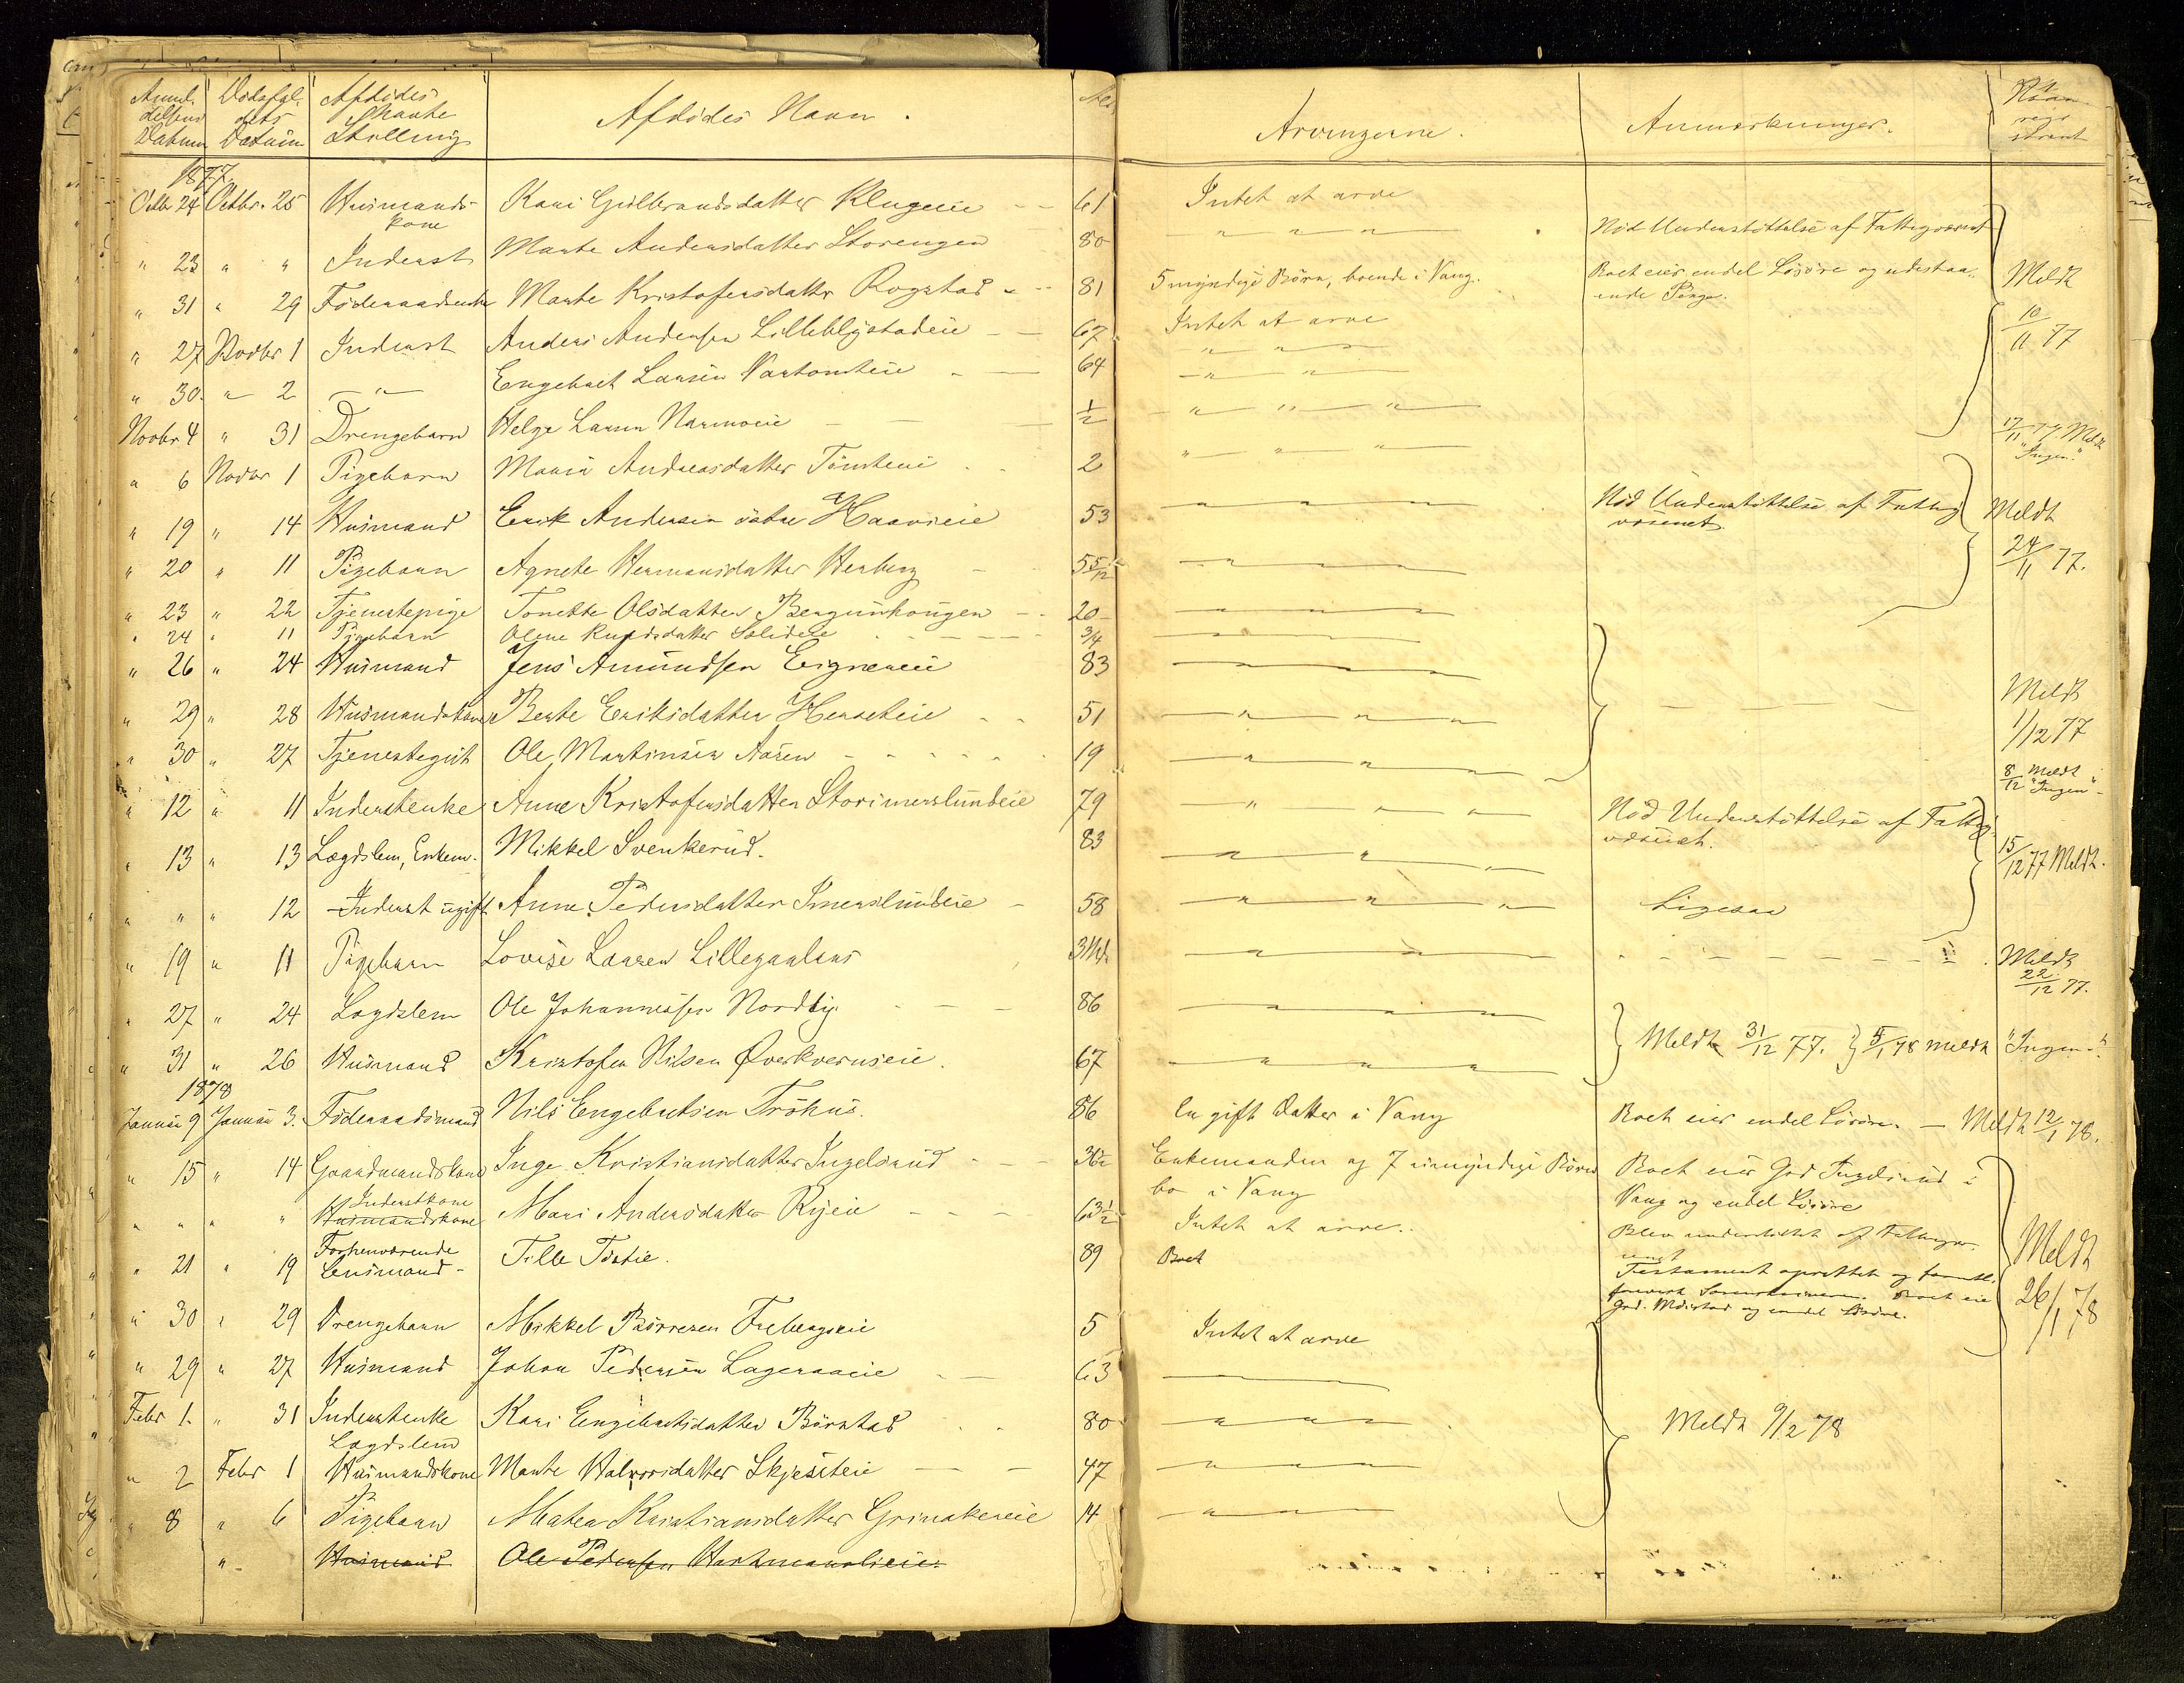 Anmel- delsens Datum | Dødsfal- dets Datum | Afdødes Stilling | Afdødes Navn. | Arvingerne. | Anmærkninger.
1877.
Octbr 24 Octbr. 25 Husmands- kone Kari Gulbrandsdatter Klugeeie 61 Intet at arve
" 23 " " Inderst Marte Andersdatter Storengen 80 " " " Nød Understøttelse af Fattigvæsnet
" 31 " 29 Føderaadsenke Marte Kristofersdatter Rogstad 81 5 myndige Børn, boende i Vang. Boet eier endel Løsøre og udestaa- ende Penge. Meldt
" 27 Novbr 1 Inderst Anders Andersen Lilleblystadeie 67 Intet at arve 10/11 77
" 30 " 2 " Engebret Larsen 64 " "
Novbr 4 " 31 Drengebarn Helge Larsen Narmoeie 1/2 " " " 17/11 77 Meldt "Ingen"
" 6 Novbr 1 Pigebarn Maria Andreasdatter 2 " " "
" 19 " 14 Husmand Erik Andersen østre Haavieie 53 " " " Nød Understøttelse af Fattig væsenet. Meldt
" 20 " 11 Pigebarn Agnete Hermansdatter Herberg 5 5/12 " " " 24/11 77.
" 23 " 22 Tjenestepige Tonette Olsdatter Bergunhougen 20 " " "
" 24 " 11 Pigebarn Oline Knudsdatter 3/4 " " "
" 26 " 24 Husmand Jens Amundsen 83 " " "
" 29 " 28 Husmandskone Berte Eriksdatter Herseteie 51 " " " Meldt 1/12 77
" 30 " 27 Tjenestegut Ole Martinsen Aasen 19 " " "
" 12 " 11 Inderstenke Anne Kristofersdatter Storimerslundeie 79 " " " Nød Understøttelse af Fattig- væsnet. 8/12 Meldt "Ingen"
" 13 " 13 Lægdslem, Enkem. Mikkel Svenkerud. 83 " " " 15/12 77 Meldt.
" " " 12 Inderst ugift Anne Pedersdatter Imerslundeie 58 " " " Ligesaa
" 19 " 11 Pigebarn Lovise Larsen 3 Md. " " " Meldt 22/12 77.
" 27 " 24 Lægdslem Ole Johannessen Nordby. 86 " " "
" 31 " 26 Husmand Kristofer Nilsen Øverkvernseie. 67 " " " Meldt 31/12 77. 5/1 78 meldt "Ingen"
1878
Januar 9 Januar 3. Føderaadsmand Nils Engebretsen Frøhus. 86 En gift Datter i Vang Boet eier endel Løsøre. — Meldt 12/1 78.
" 15 " 14 Gaardmandskone Inge Kristiansdatter Ingelsrud 36 1/2 Enkemanden og 7 umyndige Børn bo i Vang Boet eier Grd Ingelsrud i Vang og endel Løsøre
" " " " Inderstkone Husmandskone Mari Andersdatter Ryeie 63 1/2 Intet at arve. Blev understøttet af Fattigvæ- snet
" 21 " 19 Forhenværende Lensmand Tille 89 Boet Testament oprettet og Boet eier Grd. og endel Løsøre. Meldt 26/1 78
" 30 " 29 Drengebarn Mikkel Børresen Frebergseie 5 Intet at arve
" 29 " 27 Husmand Johan Pedersen Lageraaeie 63
Febr 1. " 31 Inderstenke Lægdslem Kari Engebretsdatter Børstad 80 " " " Meldt 9/2 78
" 2 Febr 1 Husmandskone Marte Halvorsdatter Skjeseteie 47 " " "
" 8 " 6 Pigebarn Mathea Kristiansdatter Grinakereie 14 " " "
" Husmand Ole Pedersen